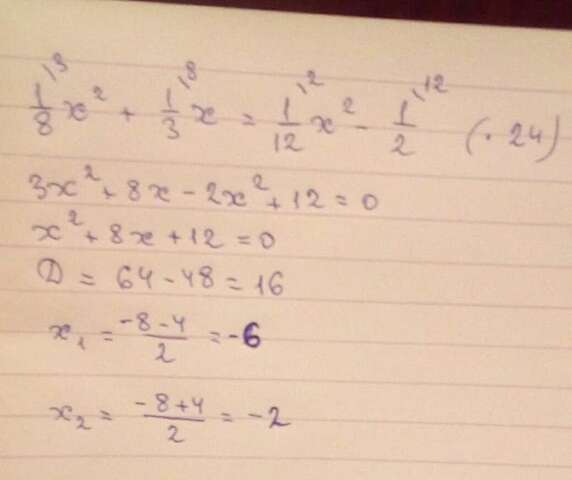 1/8^{\3} x² + 1/3^{\8} x = 1/12^{\2} x² - 1/2^{\12} (· 24)
3x² + 8x - 2x² + 12 = 0
x² + 8x + 12 = 0
D = 64 - 48 = 16
x₁ = (-8 - 4)/2 = -6
x₂ = (-8 + 4)/2 = -2